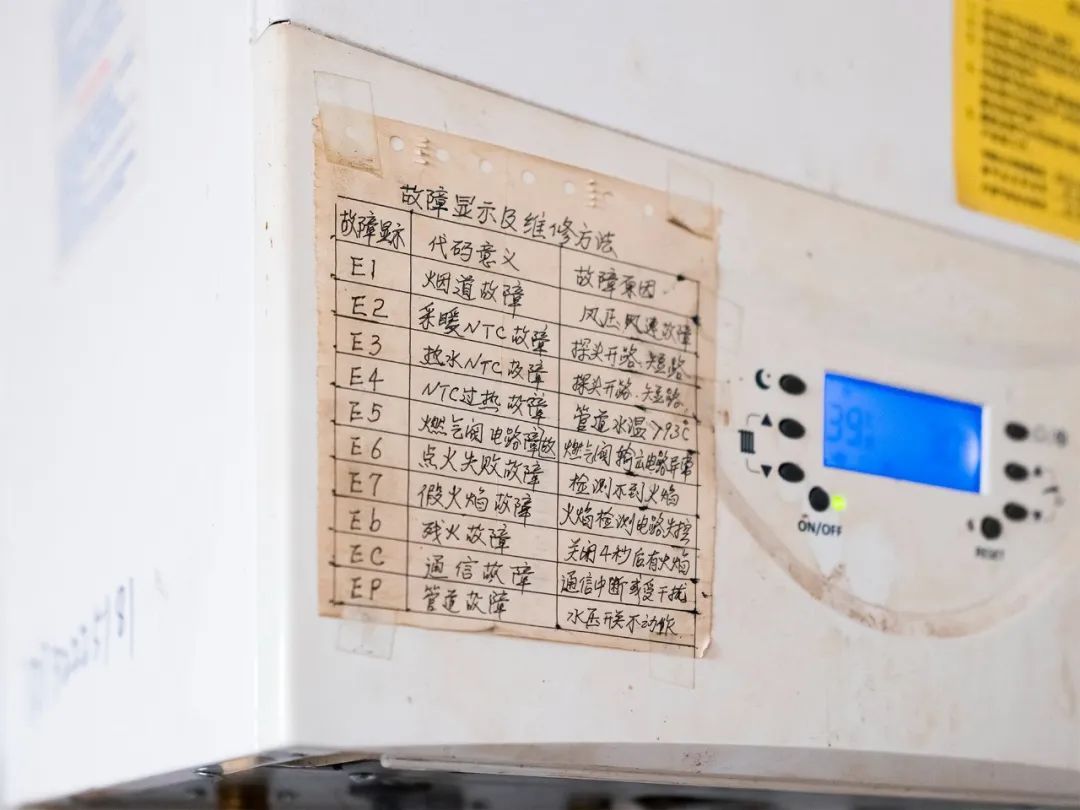 故障显示及维修方法
故障显示 代码意义 故障原因
E1 烟道故障 风压风速故障
E2 采暖NTC故障 探头开路、短路
E3 热水NTC故障 探头开路、短路
E4 NTC过热故障 管道水温>93℃
E5 燃气阀电路障故 燃气阀输出电路异常
E6 点火失败故障 检测不到火焰
E7 假火焰故障 火焰检测电路失控
Eb 残火故障 关闭4秒后有火焰
EC 通信故障 通信中断或受干扰
EP 管道故障 水压开关不动作
39
ON/OFF
RESET